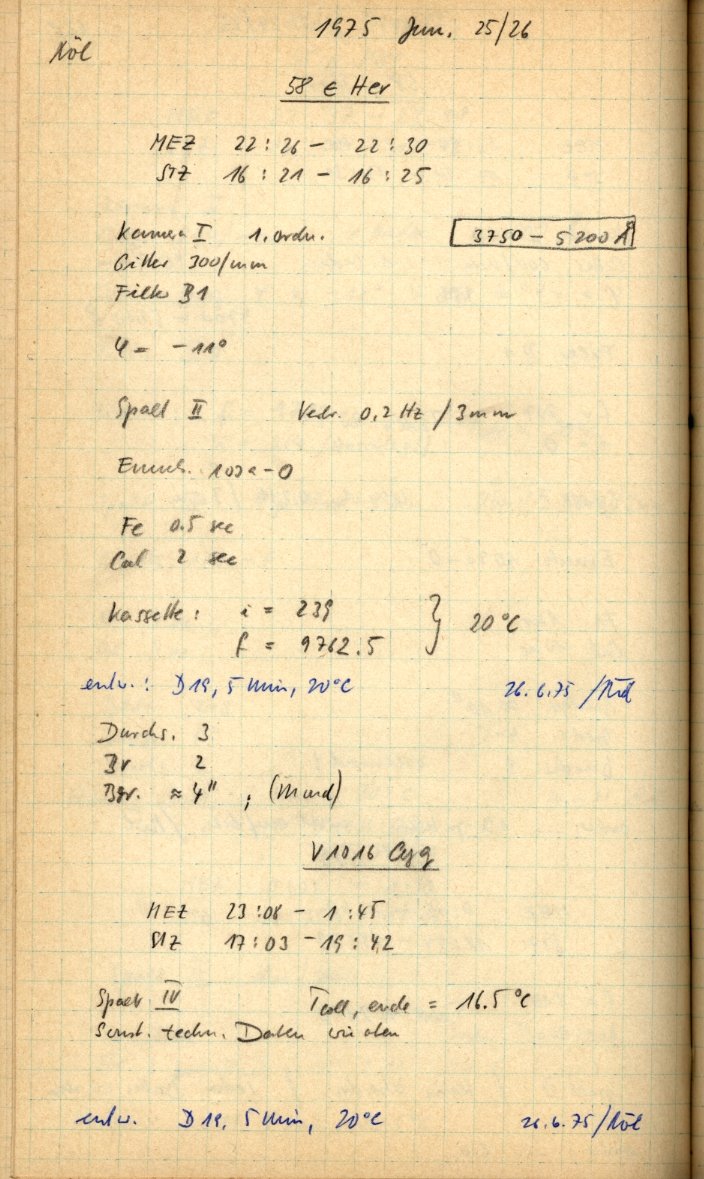 1975 Jun. 25/26
Köl
58 ε Her
MEZ 22:26 - 22:30
STZ 16:21 - 16:25
Kamera I 1. Ordn. 3750 - 5200 Å
Gitter 300/mm
Filter B1
φ = -11°
Spalt II Verbr. 0.2 Hz / 3mm
Emuls. 103a-O
Fe 0.5 sec
Cal 2 sec
Kassette: i = 239
f = 9762.5 } 20°C
entw.: D19, 5 Min, 20°C 26.6.75 /
Durchs. 3
Br 2
Bgr. ≈ 4" ; (Mond)
V1016 Cyg
MEZ 23:08 - 1:45
STZ 17:03 - 19:42
Spalt IV Tcoll, ende = 16.5°C
Sonst. techn. Daten wie oben
entw. D19, 5 Min, 20°C 26.6.75/Köl